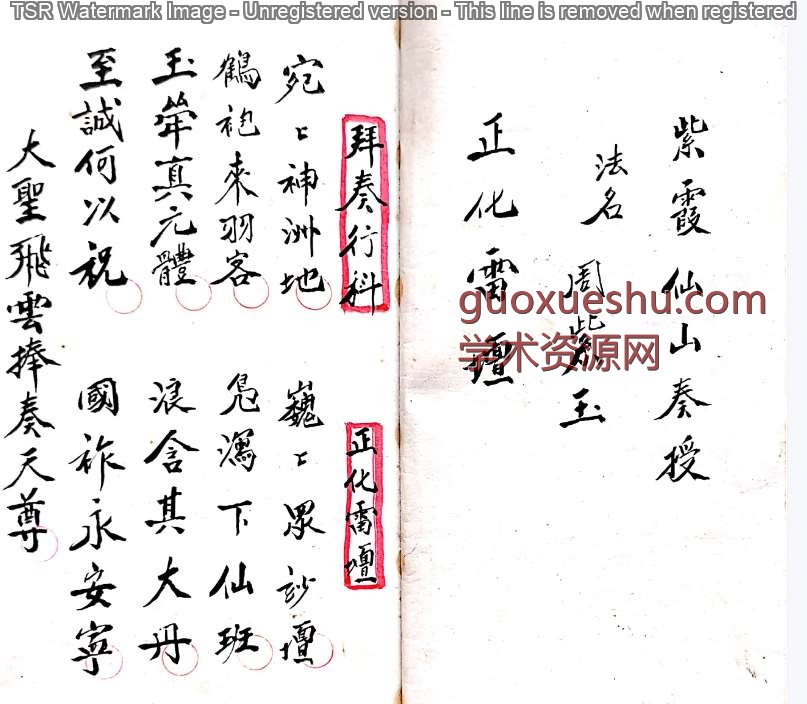 TSR Watermark Image - Unregistered version - This line is removed when registered
紫霞仙山奏授
法名 周紫玉
正化雷壇
guoxueshu.com
学术资源网
拜奏行科 正化雷壇
宛〻神洲地 巍〻眾玅壇
鶴袍來羽客 鳧下仙班
玉真元體 浪含其大丹
至誠何以祝 國祚永安寧
大聖飛雲捧奏天尊